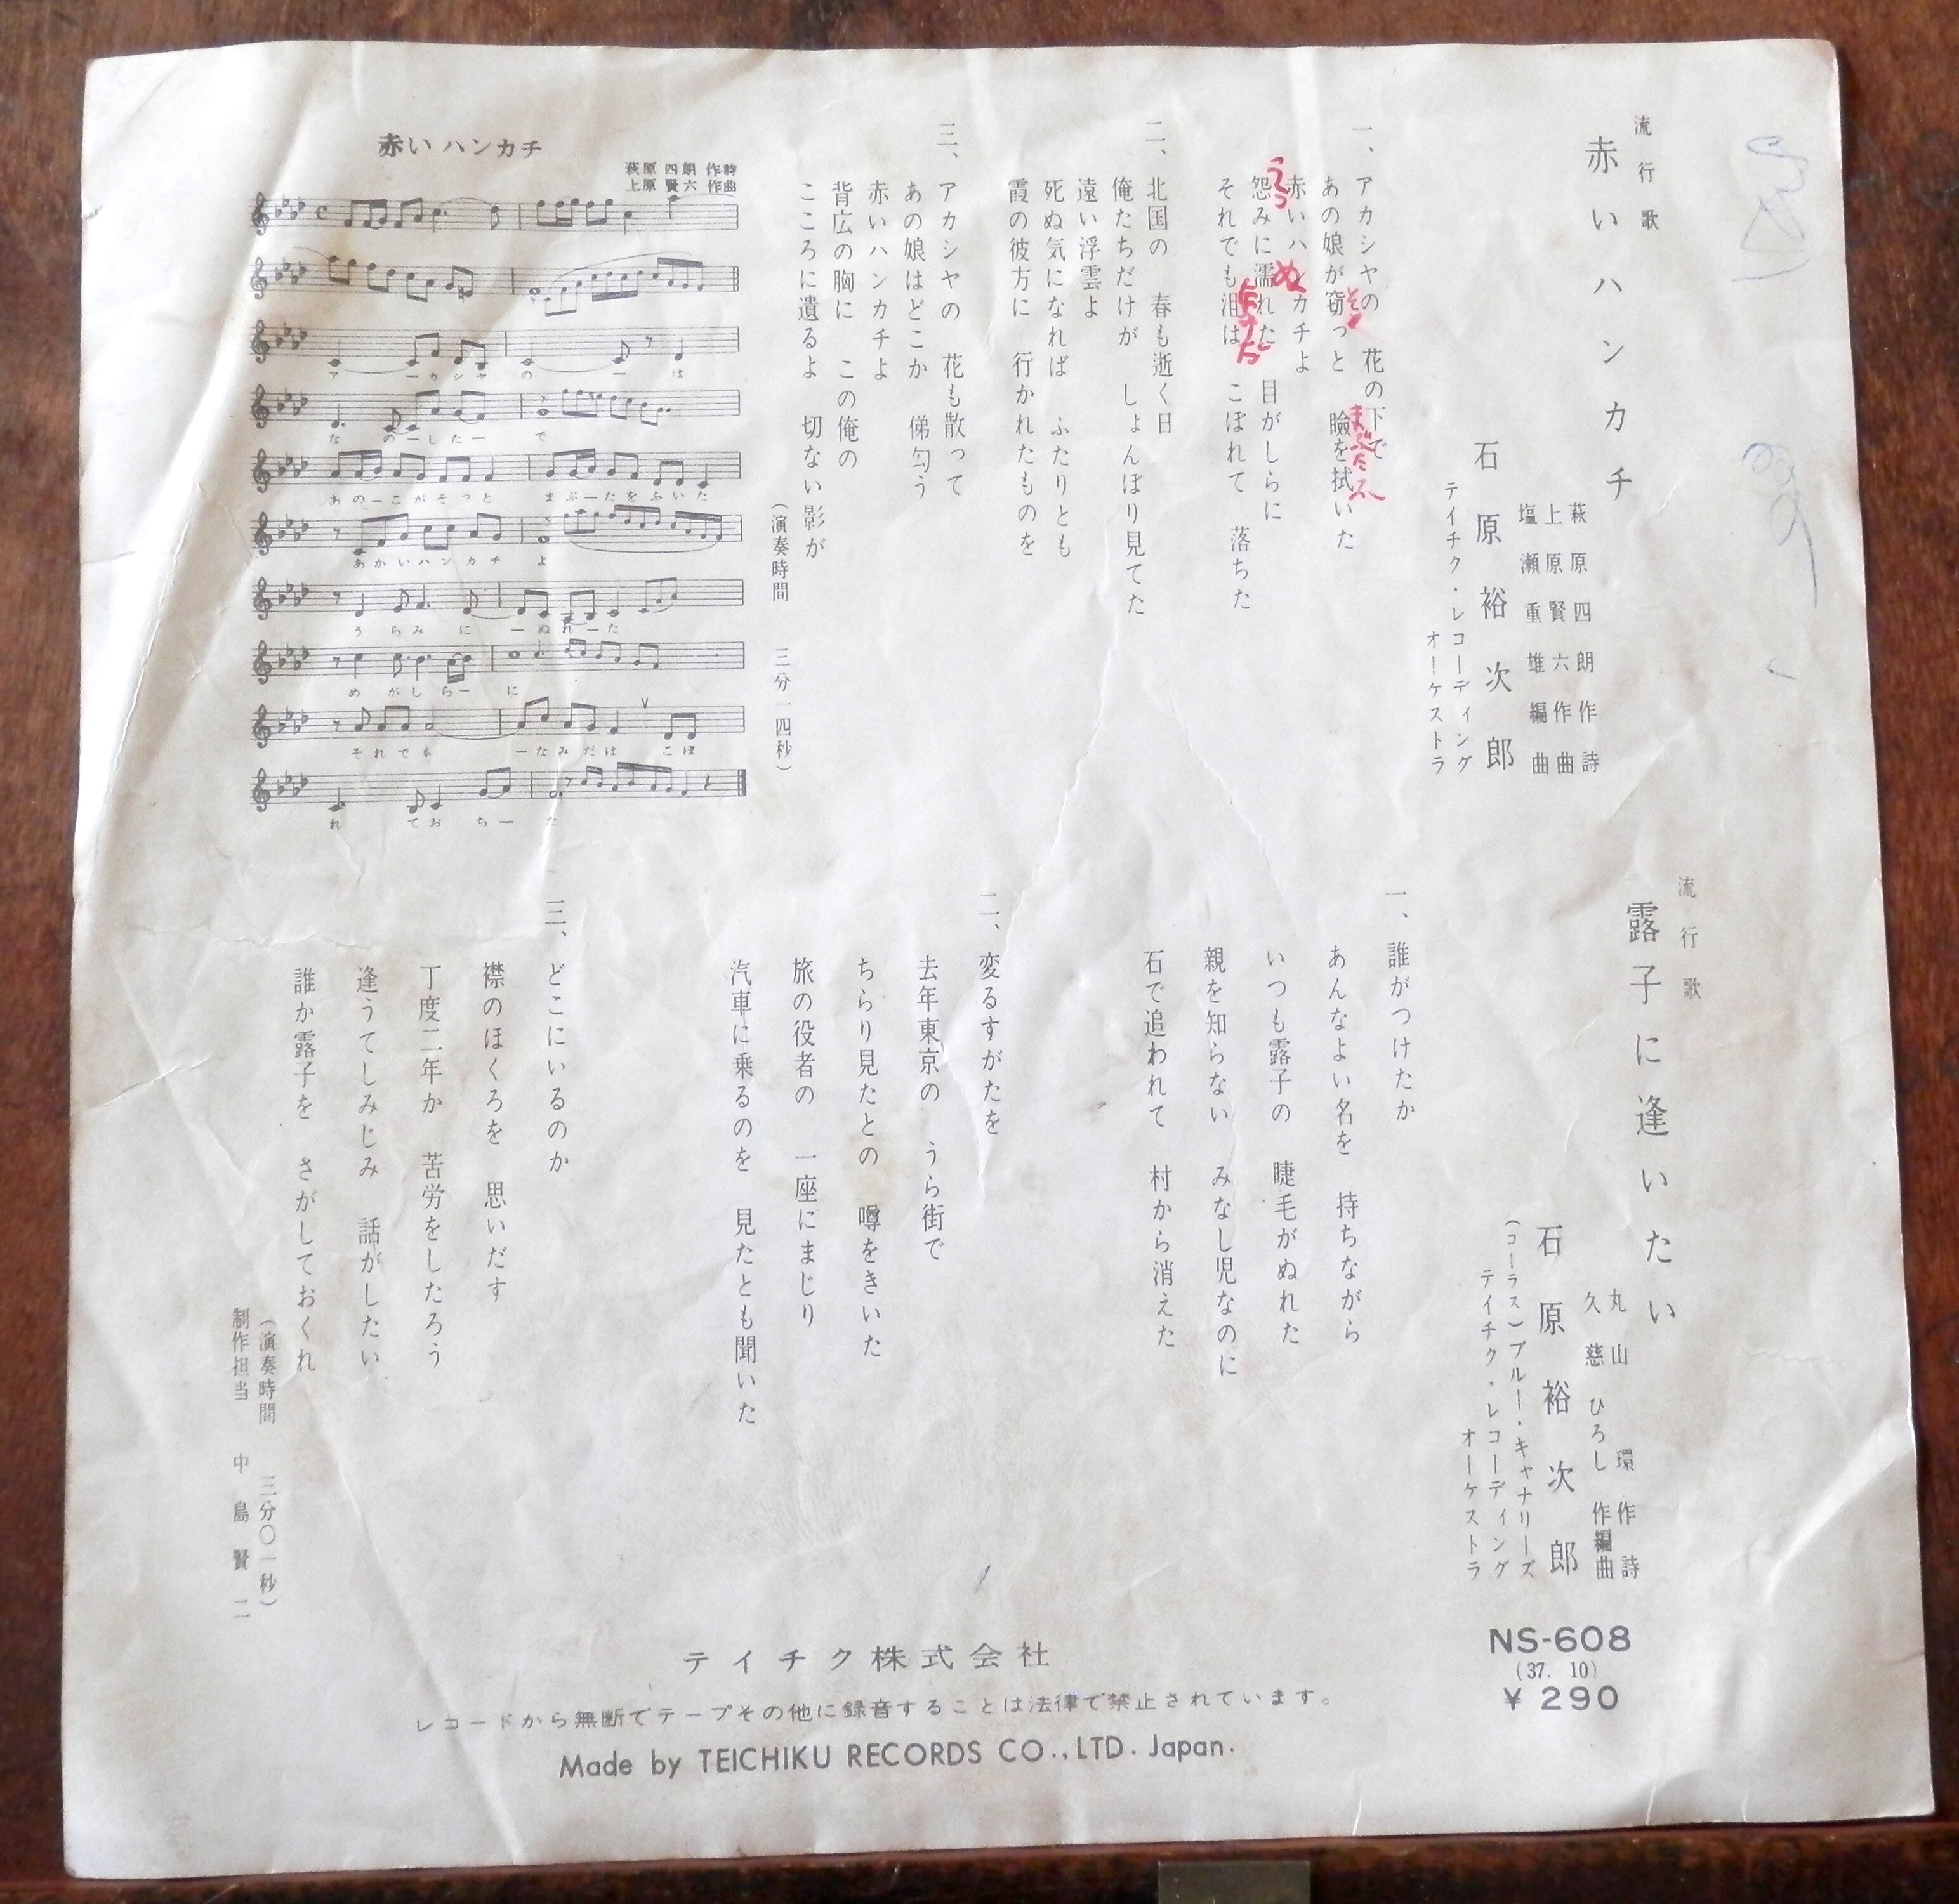 流行歌
赤いハンカチ
萩原四朗 作詩
上原賢六 作曲
塩瀬重雄 編曲
石原裕次郎
テイチク・レコーディング
オーケストラ
一、アカシヤの 花の下で
あの娘が窃っと 瞼を拭いた
そ
まぶた ふ
赤いハンカチよ
怨みに濡れた 目がしらに
うら
ぬ
それでも泪は こぼれて 落ちた
なみだ
二、北国の 春も逝く日
俺たちだけが しょんぼり見てた
遠い浮雲よ
死ぬ気になれば ふたりとも
霞の彼方に 行かれたものを
三、アカシヤの 花も散って
あの娘はどこか 俤匂う
赤いハンカチよ
背広の胸に この俺の
こころに遺るよ 切ない影が
(演奏時間 三分一四秒)
赤い ハンカチ
萩原 四朗 作詩
上原 賢六 作曲
ア ーカシヤ の ー は
な のーしたー で
あのーこがそっと まぶーたをふいた
あかいハンカチ よ
うらみ に ーぬれーた
めがしらー に
それでも ーなみだは こぼ
れ てお ちー た
流行歌
露子に逢いたい
丸山環 作詩
久慈ひろし 作編曲
石原裕次郎
(コーラス)ブルー・キャナリーズ
テイチク・レコーディング
オーケストラ
一、誰がつけたか
あんなよい名を 持ちながら
いつも露子の 睫毛がぬれた
親を知らない みなし児なのに
石で追われて 村から消えた
二、変るすがたを
去年東京の うら街で
ちらり見たとの 噂をきいた
旅の役者の 一座にまじり
汽車に乗るのを 見たとも聞いた
三、どこにいるのか
襟のほくろを 思いだす
丁度二年か 苦労をしたろう
逢うてしみじみ 話がしたい
誰か露子を さがしておくれ
(演奏時間 三分〇一秒)
制作担当 中島賢二
NS-608
(37. 10)
¥ 290
テイチク株式会社
レコードから無断でテープその他に録音することは法律で禁止されています。
Made by TEICHIKU RECORDS CO.,LTD. Japan.